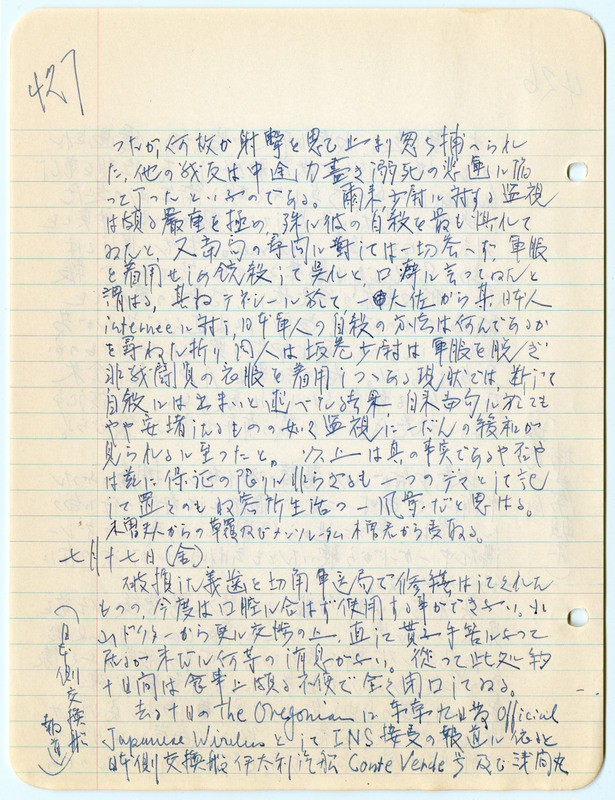 427
つたが、何故か射撃を思ひ止まり忽ち捕へられ
た。他の戦友は中途力盡き溺死の悲運に陥
つて了つたといふのである。爾来少尉に対する監視
は頗る嚴重を極め、殊に彼の自殺を最も怖れて
ゐたと、又当局の尋問に對しては一切答へず、軍服
を着用せしめ銃殺して呉れと、口癖に言つてゐたと
謂はる。其ねテネシーに於て、一大佐から某日本人
internee に対し、日本軍人の自殺の方法は何んであるか
を尋ねた折り、同人は坂巻少尉は軍服を脱ぎ
非戦闘員の衣服を着用しつつある現状では、断じて
自殺には出まいと述べてゐる結果、自来当局に於ても
やや安堵したるものの如く監視に一だんの緩和が
見られるに至つたと。以上は真の事実であるや否や
は茲に保証の限りに非らざるも一つのデマとして記
して置くのも収容所生活の一風景だと思はる。
木曽夫人からの草履及びメンソレータム木曽君から受取る。
七月十七日(金)
破損した義歯を切角軍医局で修繕はしてくれた
ものの、今度は口腔に合はず使用する事ができない。
ドクターから更に交渉の上、直して貰ふ手筈になつて
居るが未だに何等の消息がない。從つて此処約
十日間は食事上頗る不便で全く閉口してゐる。
去る十日の The Oregonian に東京九日発 Official
Japanese Wireless として INS 接受の報道に依ると
日本側交換船伊太利汽船 Conte Verde 号及び浅間丸
(日本側交換船
報道)